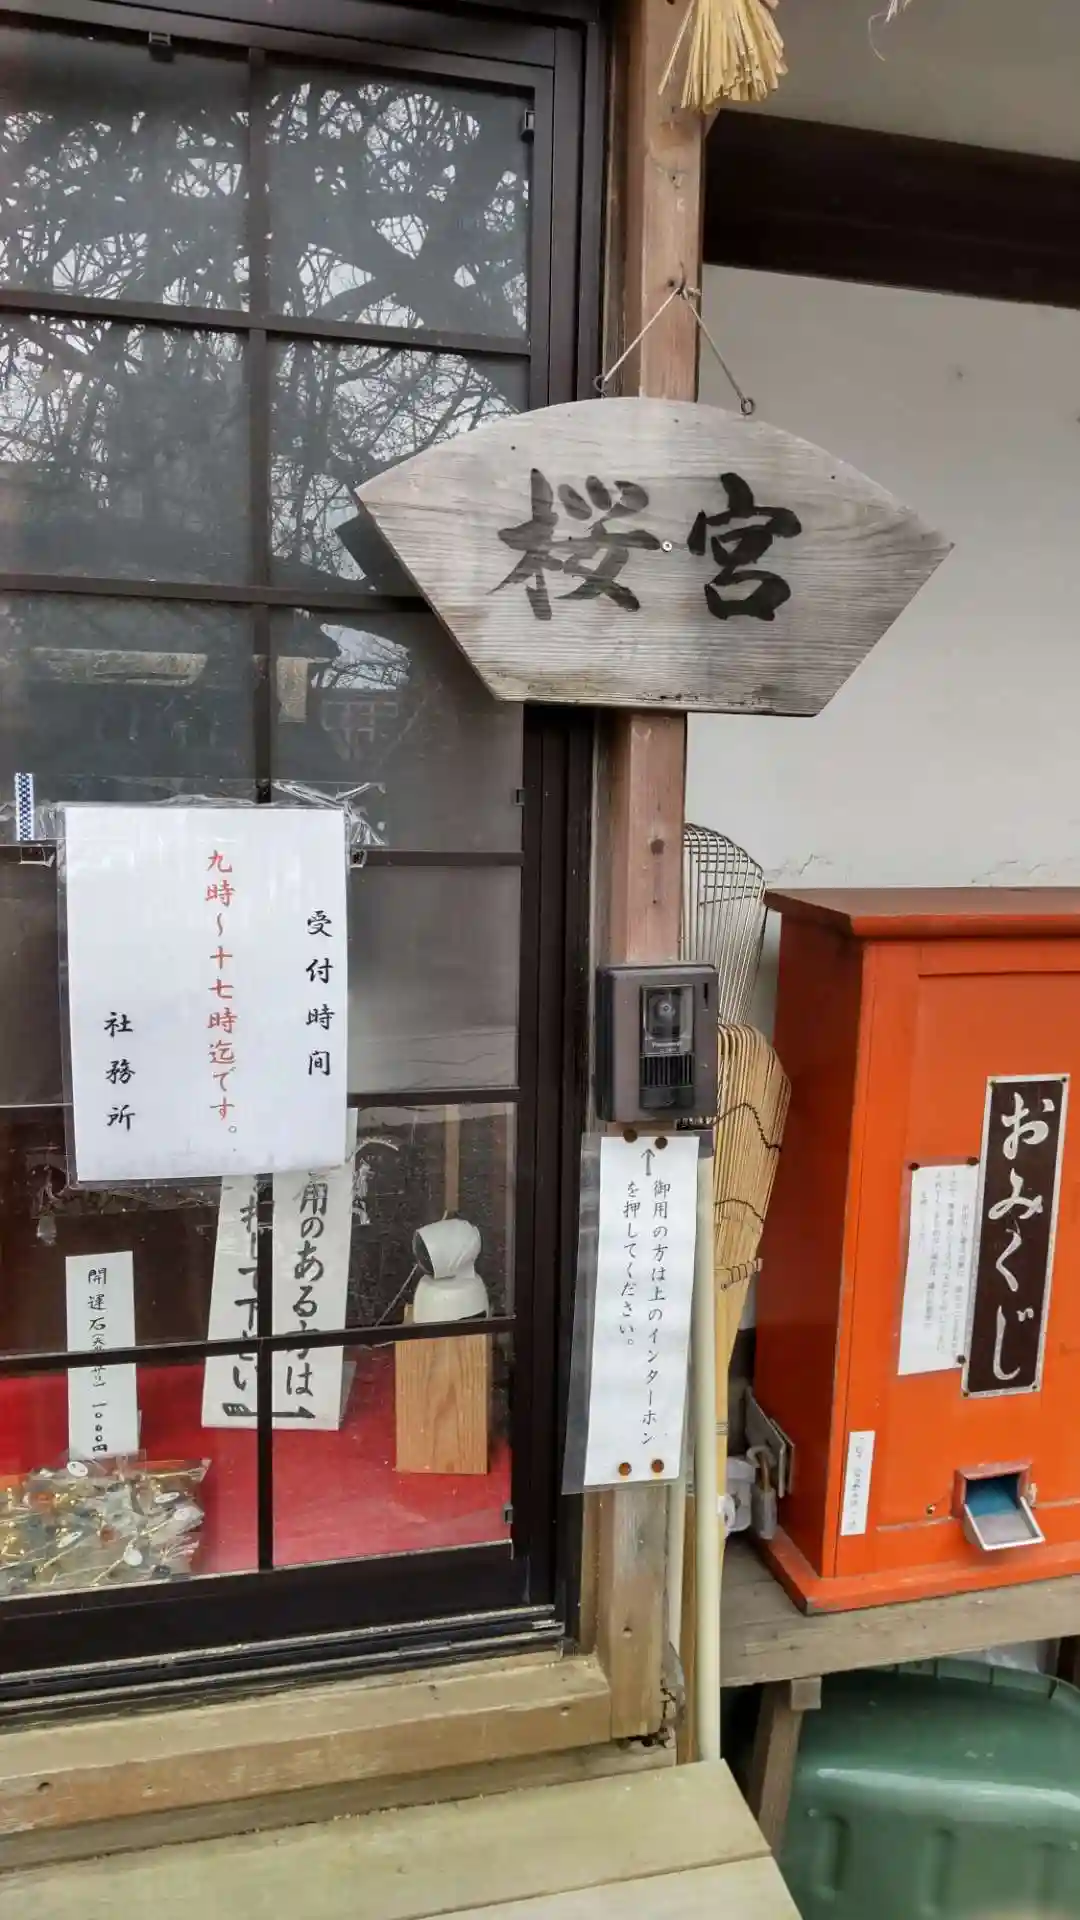 桜宮
受付時間
九時〜十七時迄です。
社務所
御用の方は上のインターホン
を押してください。
おみくじ
用のある方は
押して下さい
開運石
一〇〇〇円